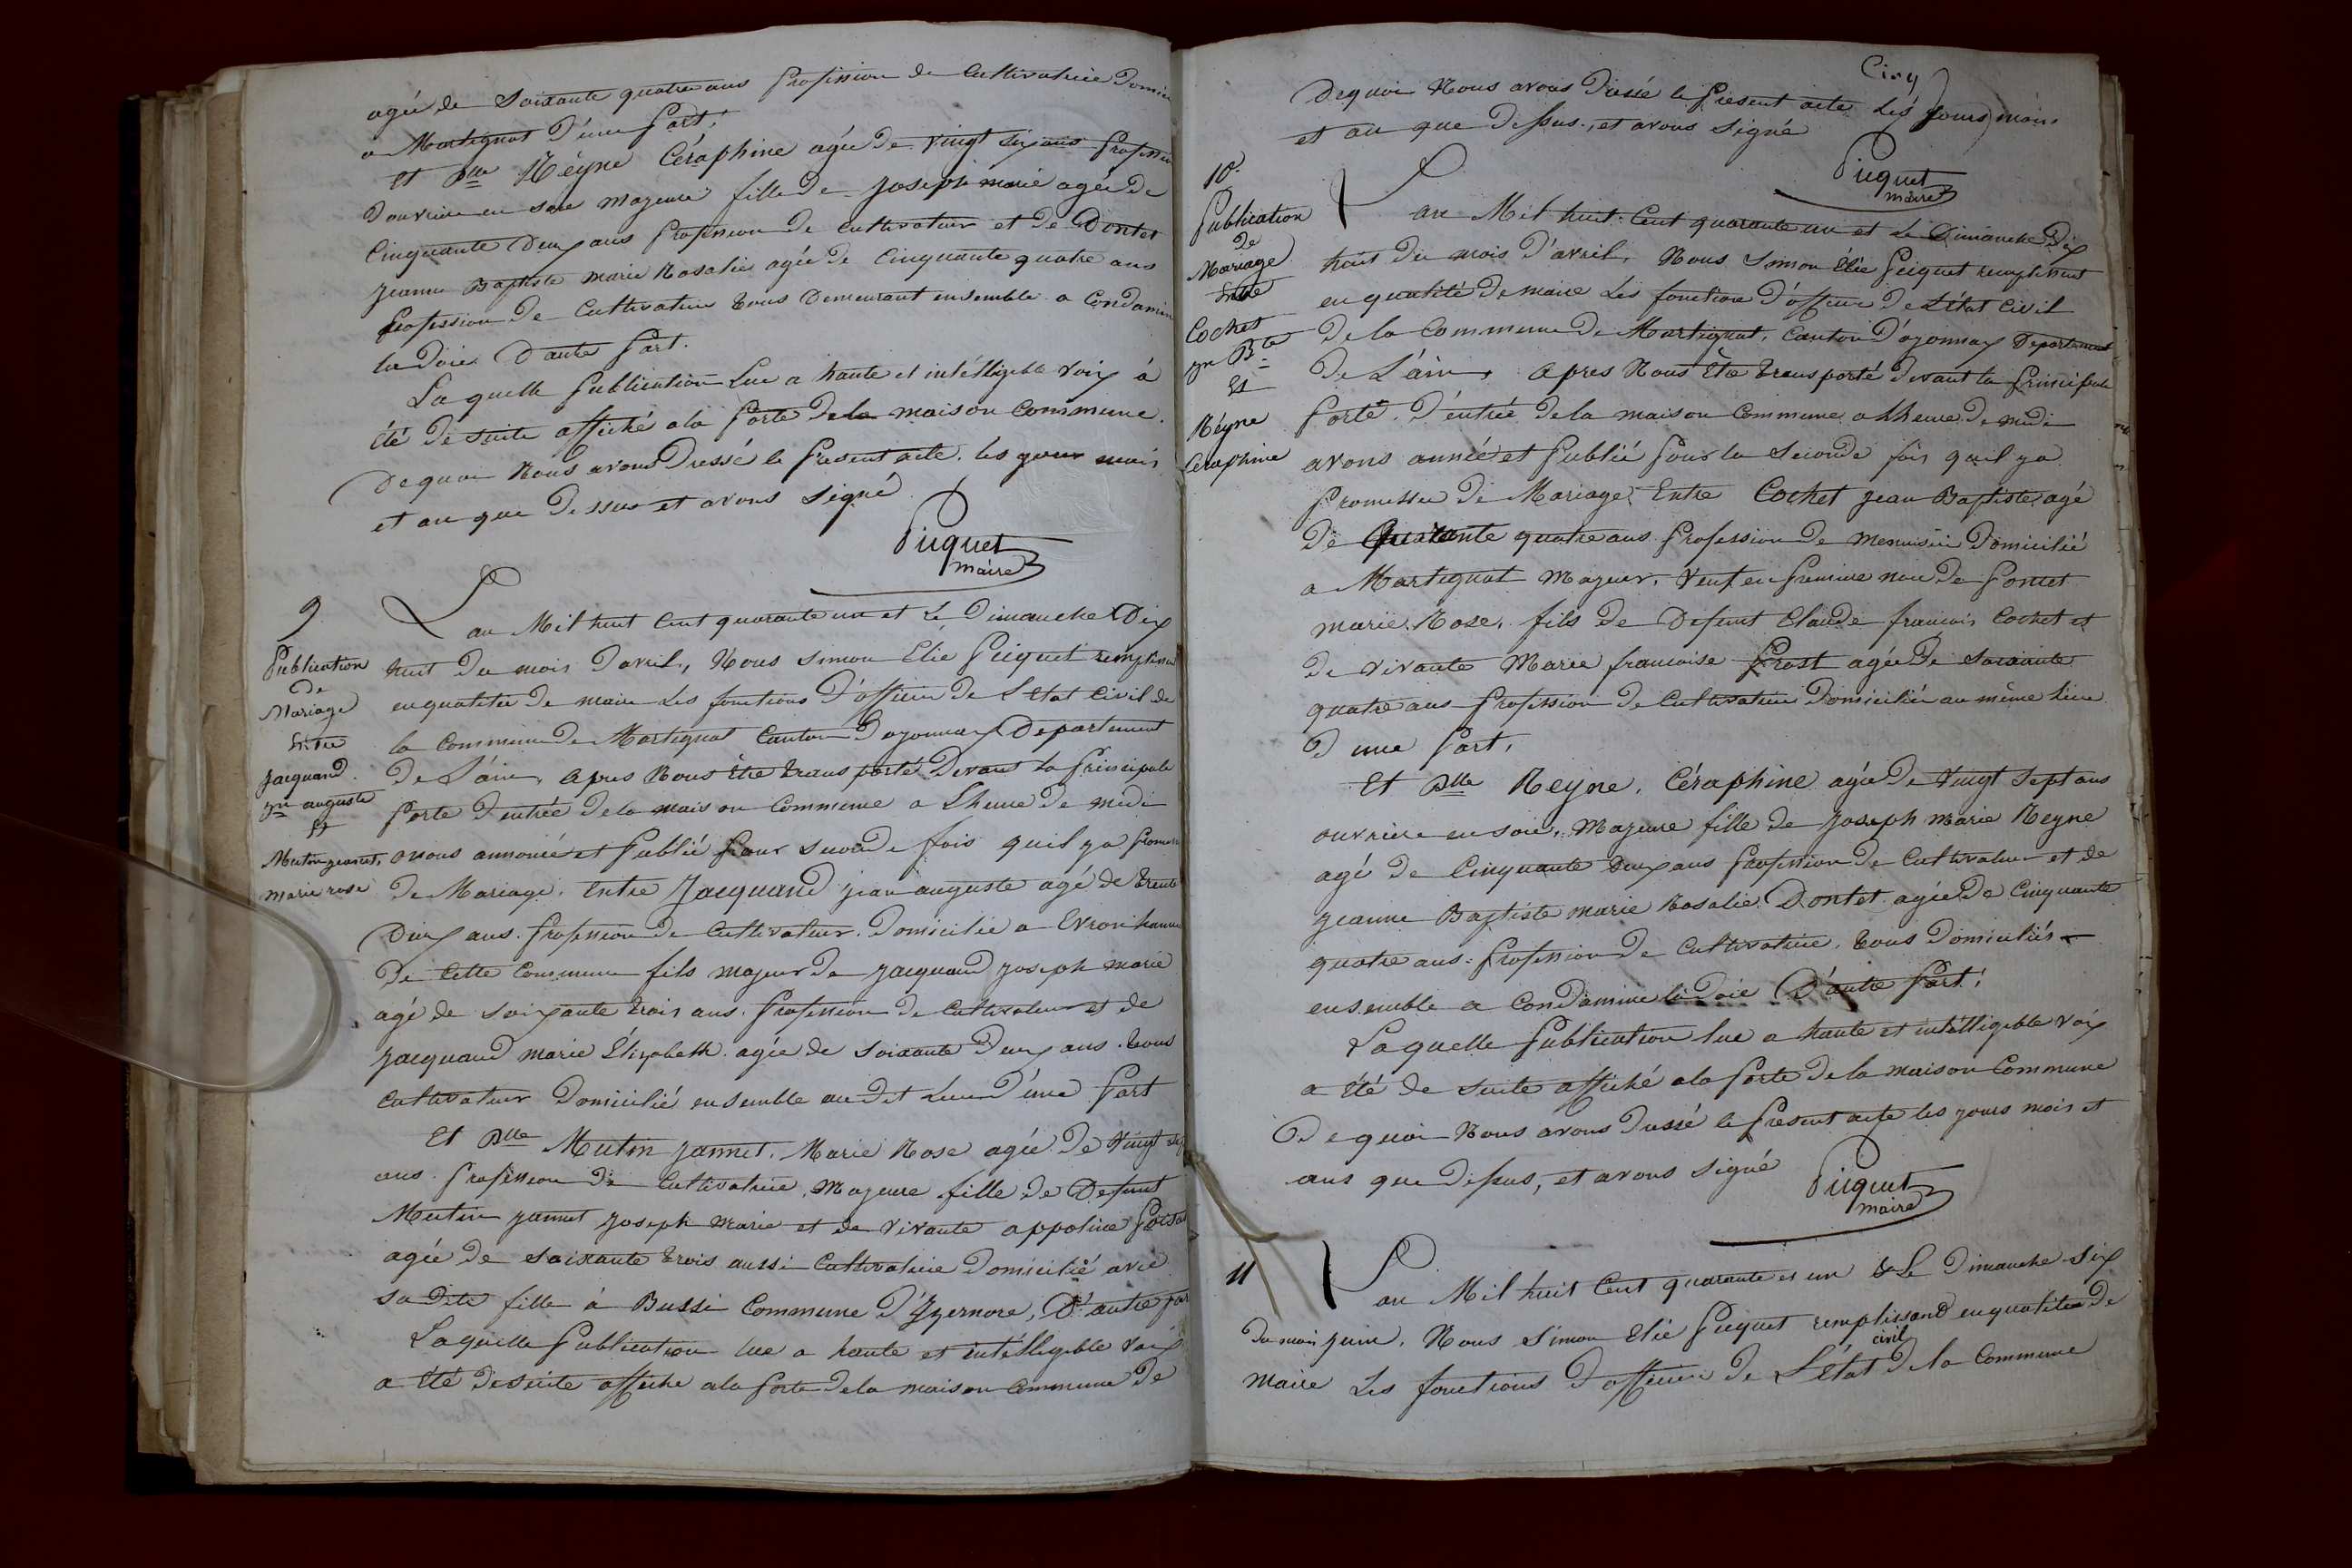 agée de Soixante quatre ans profession de Cultivatrice Domici
a Martignat D'une part.
Et Dlle Réyne Céraphine agée de vingt six ans profession
D'ouvriere en soie majeure fille de Joseph marie agée de
Cinquante Deux ans profession de cultivateur et de Dontet
Jeanne Baptiste marie Rosalie agée de Cinquante quatre ans
profession de Cultivatrice tous Demeurant ensemble a Condamine
la Doie. D'autre part.
Laquelle publication Lue a haute et intélligible voix à
été de suite affiché a la porte de la maison Commune.
De quoi Nous avons Dressé le present acte. les jour mois
et an que Dessus et avons Signé
Piquet
maire
9
Publication
de
Mariage
Entre
Jacquand
Jn auguste
Et
Mutin jeannet,
Marie rose
L'an Mil huit Cent quarante un et Le Dimanche Dix
huit Du mois D'avril, Nous Simon Elie Piquet remplissant
en qualitée De maire Les fonctions D'officier De L'Etat Civil de
la Commune De Martignat Canton D'oyonnax Departement
De L'ain, apres Nous Etre transporté Devant la principale
porte D'entrée De la maison Commune a L'heure De midi
avons annoncé et publié pour seconde fois qu'il ya promesse
de Mariage. Entre Jacquand jean auguste agé de trente
Deux ans. profession de Cultivateur. Domicilié a Evron hameau
De Cette Commune fils majeur de jacquand joseph marie
agé de Soixante trois ans. profession de Cultivateur et de
Jacquand marie Elizabeth. agée de Soixante Deux ans. tous
Cultivateur Domicilié ensemble au dit Lieu D'une part
Et Dlle Mutin Jannet, Marie Rose agée de Vingt six
ans. profession de Cultivatrice, Majeure fille de Defunt
Mutin jannet Joseph marie et de vivante appoline
agée de Soixante trois aussi Cultivatrice Domicilié avec
sa Dite fille à Bussi Commune D'Yzernore, D'autre par
Laquelle publication lue a haute et intélligible voix
a Eté de suite affiche a la porte De la maison Commune De
Cinq
De quoi Nous avons Dréssé le present acte Les jours mois
et an que Dessus, et avons signé
Piquet
maire
10.
Publication
de
Mariage
Entre
Cochet
Jn Bte
Et
Réyne
Céraphine
L'an Mil huit Cent quarante un et Le Dimanche Dix
huit Du mois D'avril. Nous Simon Elie Piquet remplissant
en qualité De maire Les fonction D'officier De L'état Civil
De la Commune De Martignat, Canton D'oyonnax Departement
De L'ain, apres Nous Etre transporté Devant la principale
porte D'entrée De la maison Commune a Lheure De midi
avons annoncé et publié pour la seconde fois quil ya
promesse De Mariage, Entre Cochet jean Baptiste agé
De quatre ans profession De Menuisier Domicilié
a Martignat Majeur, Veuf en premiere noce De Poncet
marie Rose, fils De Defunt Claude francois Cochet et
De vivante Marie francoise Prost agée De Soixante
quatre ans profession De Cultivatrice Domiciliée au même lieu
D'une part,
Et Dlle Reyne, Céraphine agée De Vingt Sept ans
ouvriere en soie, Majeure fille de Joseph marie Reyne
agé De Cinquante Deux ans profession De Cultivateur et de
Jeanne Baptiste marie Rosalie. Dontet agée De Cinquante
quatre ans. profession De Cultivatrice. tous Domiciliés
ensemble a Condamine la Doie D'autre part.
Laquelle publication lue a haute et intélligible voix
a été de suite affiché a la porte De la maison Commune
De quoi Nous avons Dressé le present acte les jours mois et
ans que Dessus, et avons signé
Piquet
maire
11
L'an Mil huit Cent quarante et un & Le Dimanche six
Du mois juin, Nous Simon Elie Piquet remplissand en qualitée De
civil
Maire Les fonctions D'officier De L'état De la Commune